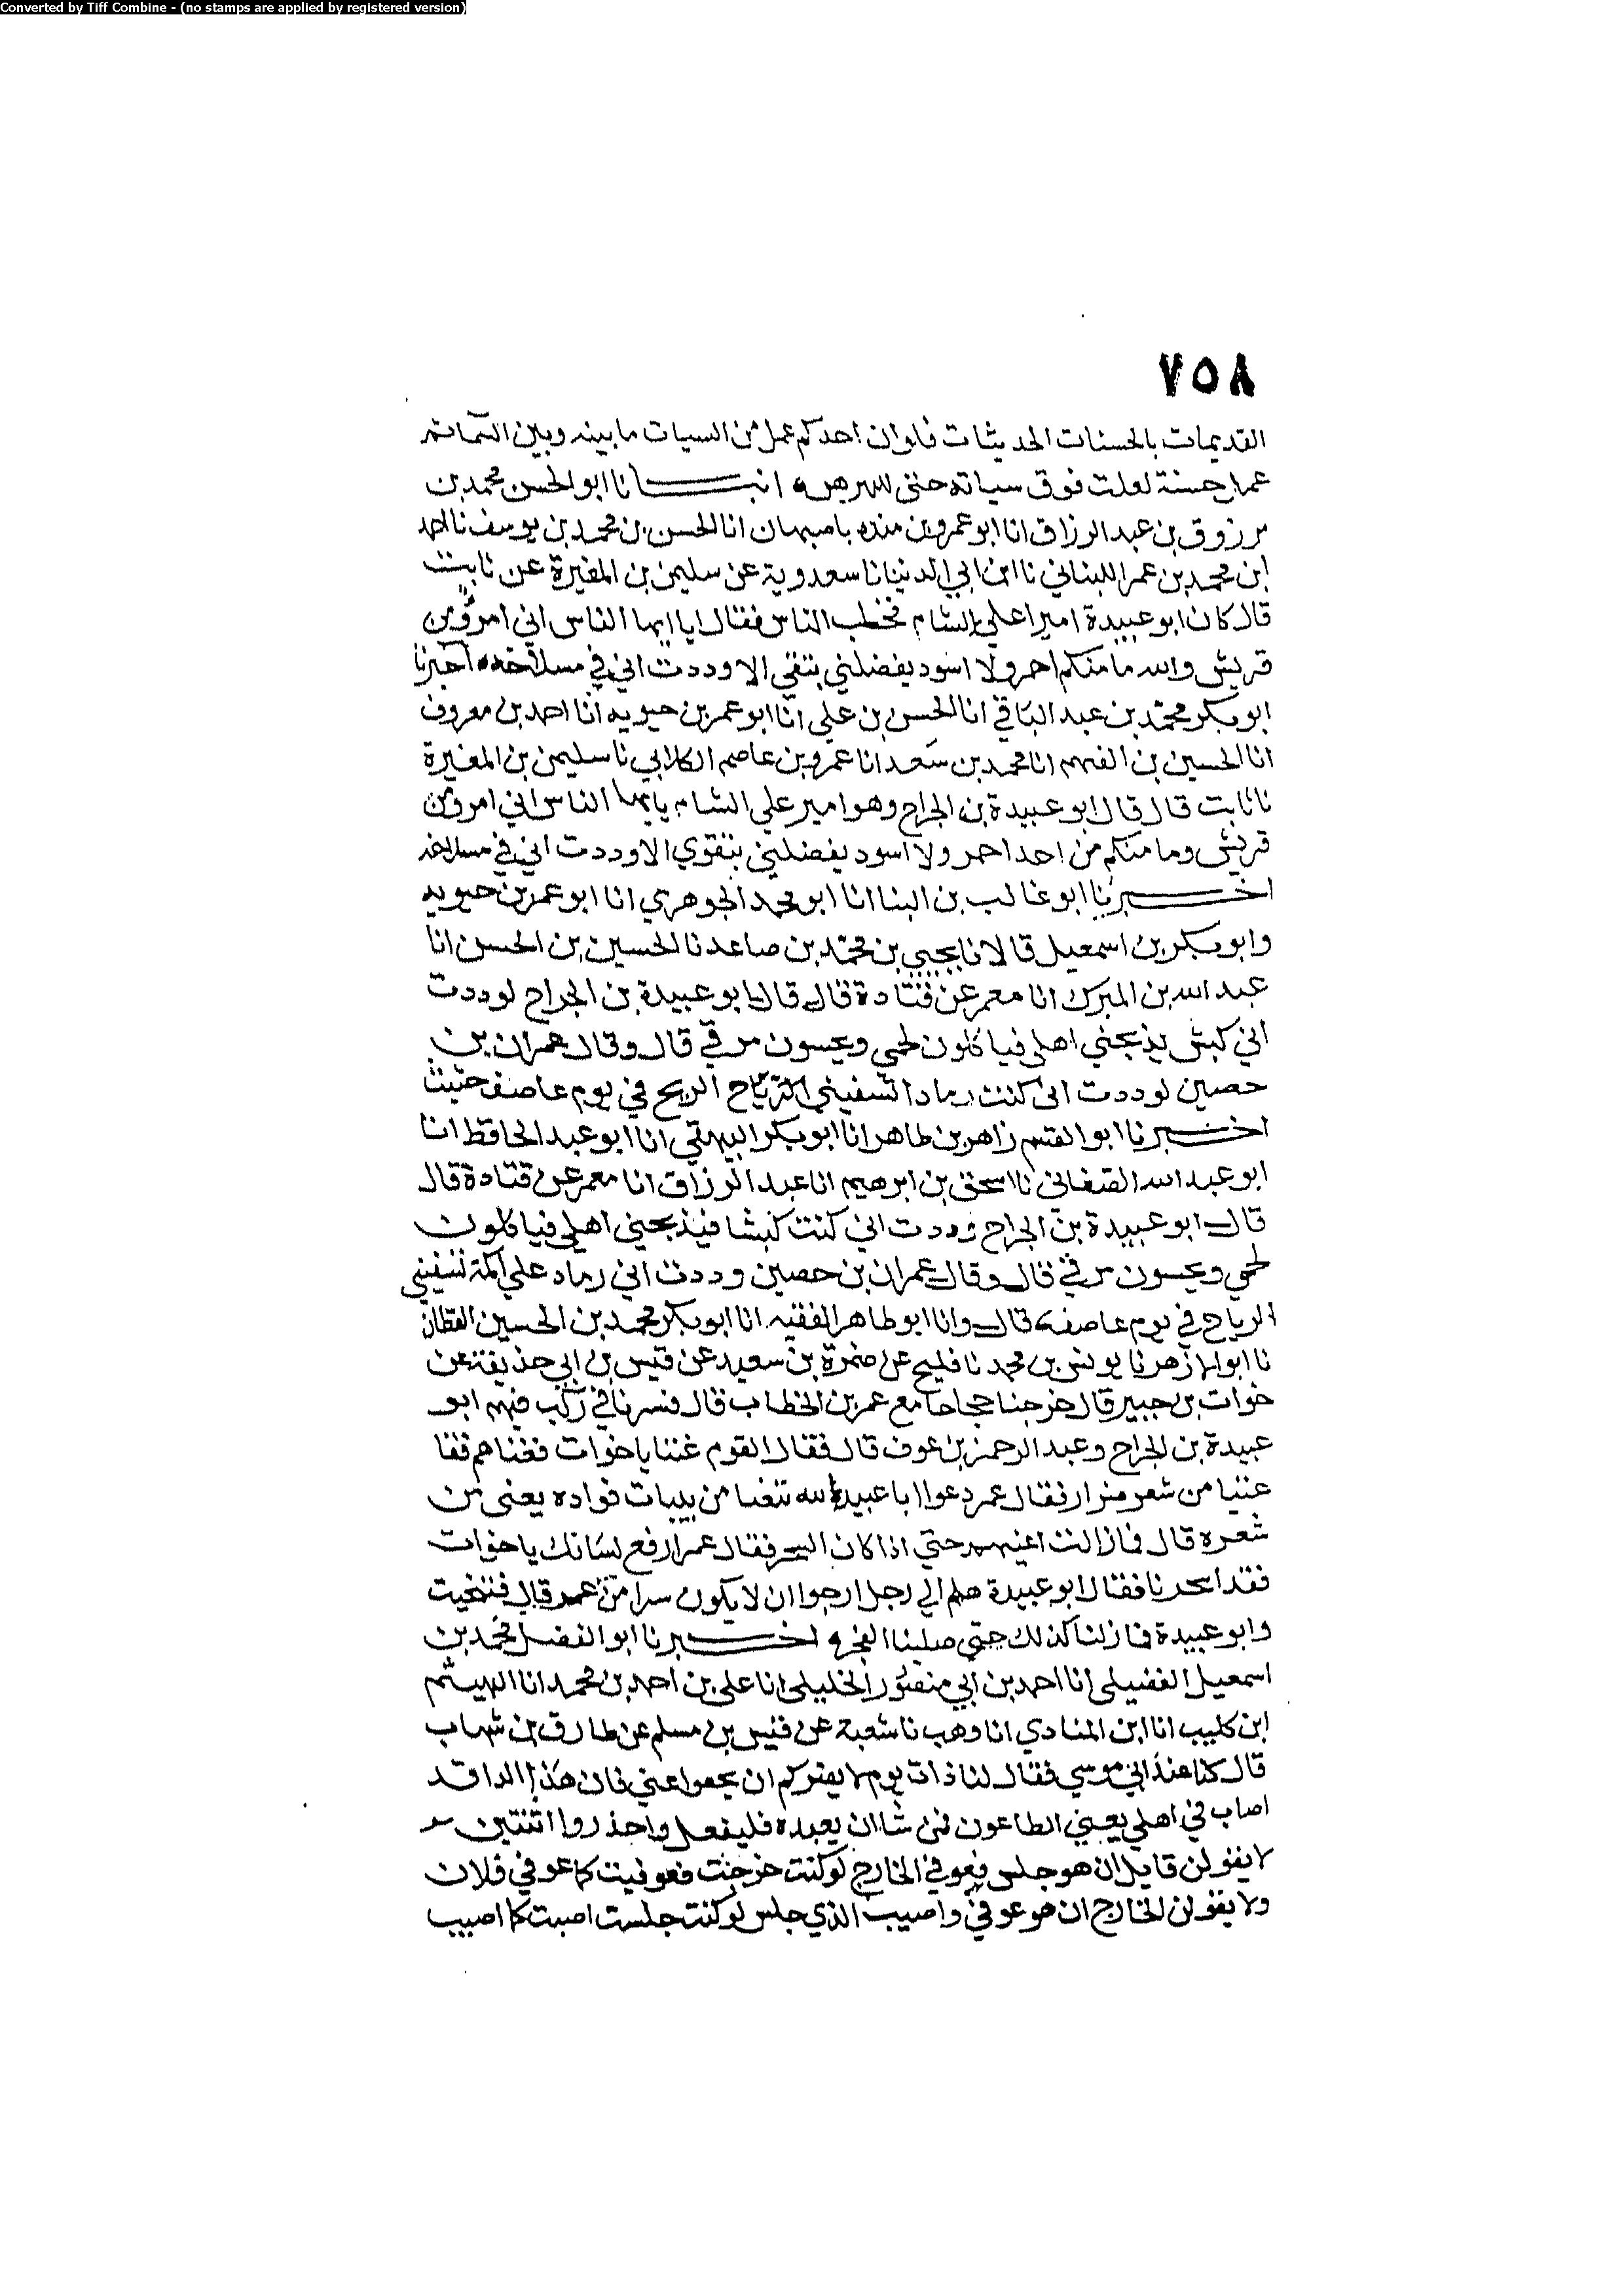 Converted by Tiff Combine - (no stamps are applied by registered version)
٧٥٨
القديمات بالحسنات الحديثات فلو ان احدكم عمل من السيات ما بينه وبين السما ثم
عمل حسنة لعلت فوق سياته حتى انبانا ابو الحسن محمد بن
مرزوق بن عبد الرزاق انا ابو عمرو بن منده باصبهان انا الحسن بن محمد بن يوسف نا احمد
ابن محمد بن عمر اللبناني نا ابن ابي الدنيا نا سعدوية عن سليمن بن المغيرة عن ثابت
قال كان ابو عبيدة اميرا على الشام فخطب الناس فقال يا ايها الناس اني امرؤ من
قريش والله ما منكم احمر ولا اسود يفضلني بتقى الا وددت اني في مسلاخه اخبرنا
ابو بكر محمد بن عبد الباقي انا الحسن بن علي انا ابو عمر بن حيويه انا احمد بن معروف
انا الحسين بن الفهم انا محمد بن سعد انا عمرو بن عاصم الكلابي نا سليمن بن المغيرة
نا ثابت قال قال ابو عبيدة بن الجراح وهو امير علي الشام يايها الناس اني امرؤ من
قريش وما منكم من احد احمر ولا اسود يفضلني بتقوي الا وددت اني في مسلاخه
اخبرنا ابو غالب بن البنا انا ابو محمد الجوهري انا ابو عمر بن حيويه
وابو بكر بن اسمعيل قالا نا يحيي بن محمد بن صاعد نا الحسين بن الحسن انا
عبد الله بن المبرك انا معمر عن قتادة قال قال ابو عبيدة بن الجراح لوددت
اني كبش يذبحني اهلي فياكلون لحمي ويحسون مرقي قال وقال عمران بن
حصين لوددت اني كنت رمادا تسفيني الريح في يوم عاصف حثيث
اخبرنا ابو القسم زاهر بن طاهر انا ابو بكر البيهقي انا ابو عبد الله الحافظ انا
ابو عبد الله الصنعاني نا اسحق بن ابرهيم انا عبد الرزاق انا معمر عن قتادة قال
قال ابو عبيدة بن الجراح وددت اني كنت كبشا فيذبحني اهلي فياكلون
لحمي ويحسون مرقي قال وقال عمران بن حصين وددت اني رماد علي اكمة تسفيني
الرياح في يوم عاصف قال وانا ابو طاهر الفقيه انا ابو بكر محمد بن الحسين القطان
نا ابو الازهر نا يونس بن محمد نا فليح عن ضمرة بن سعيد عن قيس بن ابي حذيفة عن
خوات بن جبير قال خرجنا حجاجا مع عمر بن الخطاب قال فسرنا في ركب فيهم ابو
عبيدة بن الجراح وعبد الرحمن بن عوف قال فقال القوم غننا يا خوات فغناهم فقا
غننا من شعر ضرار فقال عمر دعوا ابا عبيد الله يتغنا من بنيات فواده يعني من
شعره قال فما زلت اغنيهم حتي اذا كان السحر فقال عمر ارفع لسانك يا خوات
فقد اسحرنا فقال ابو عبيدة هلم الي رجل ارجوا ان لا يكون سرا من عمر قال فتنحيت
وابو عبيدة فما زلنا كذلك حتى صلينا الفجر اخبرنا ابو الفضل محمد بن
اسمعيل الفضيلي انا احمد بن ابي منصور الخليلي انا علي بن احمد بن محمد انا الهيثم
ابن كليب انا ابن المنادي انا وهب نا شعبة عن قيس بن مسلم عن طارق بن شهاب
قال كنا عند ابي موسي فقال لنا ذات يوم لا يضركم ان تخفوا عني فان هذا الدا قد
اصاب في اهلي يعني الطاعون فمن شا ان يعبده فليفعل واحذروا اثنتين
لا يقولن قايل ان هو جلس فعوفي الخارج لو كنت خرجت فعوفيت كما عوفي فلان
ولا يقولن الخارج ان هو عوفي واصيب الذي جلس لو كنت جلست اصبت كما اصيب